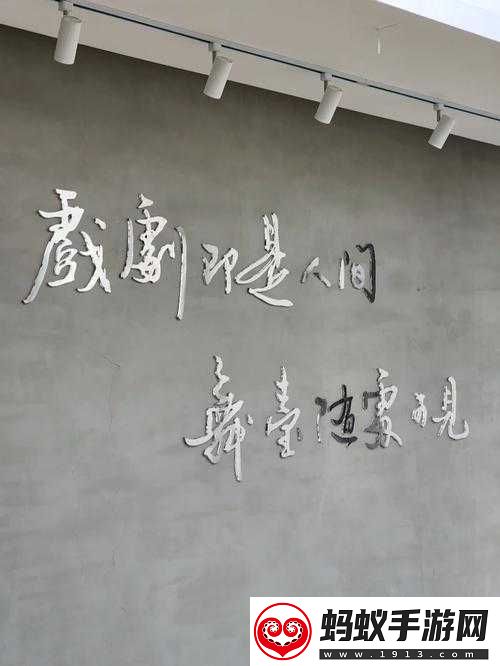 戲劇即是人间
舞臺隨處可見
蚂蚁手游网
www.1913.com